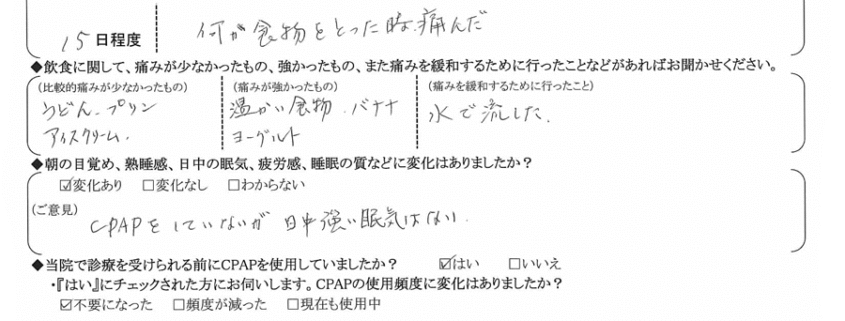 15日程度 何か食物をとった時.痛んだ
◆飲食に関して、痛みが少なかったもの、強かったもの、また痛みを緩和するために行ったことなどがあればお聞かせください。
(比較的痛みが少なかったもの) (痛みが強かったもの) (痛みを緩和するために行ったこと)
うどん.プリン 温かい食物.バナナ 水で流した.
アイスクリーム. ヨーグルト
◆朝の目覚め、熟睡感、日中の眠気、疲労感、睡眠の質などに変化はありましたか？
☑変化あり □変化なし □わからない
(ご意見)
CPAPをしていないが 日中強い眠気はない.
◆当院で診療を受けられる前にCPAPを使用していましたか？ ☑はい □いいえ
・『はい』にチェックされた方にお伺いします。CPAPの使用頻度に変化はありましたか？
☑不要になった □頻度が減った □現在も使用中